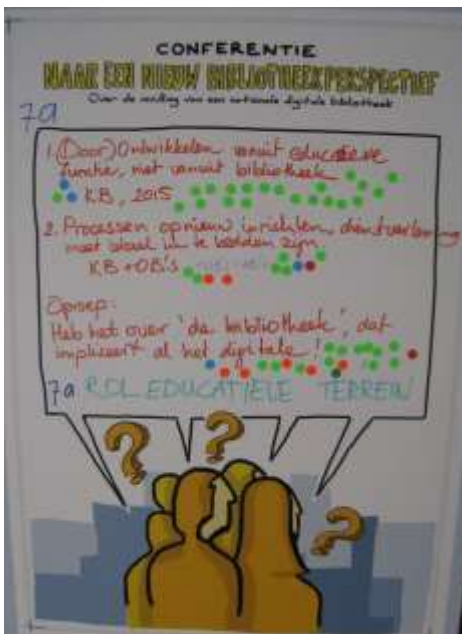 CONFERENTIE
NAAR EEN NIEUW BIBLIOTHEEKPERSPECTIEF
Over de vorming van een nationale digitale bibliotheek
7a
1. (Door)Ontwikkelen vanuit educatieve
functie, niet vanuit bibliotheek
KB, 2015
2. Processen opnieuw inrichten, dienstverlening
moet daar in te bedden zijn.
KB + OB's
Oproep:
Heb het over 'de bibliotheek', dat
impliceert al het digitale!
7a ROL EDUCATIEVE TERREIN
? ? ?